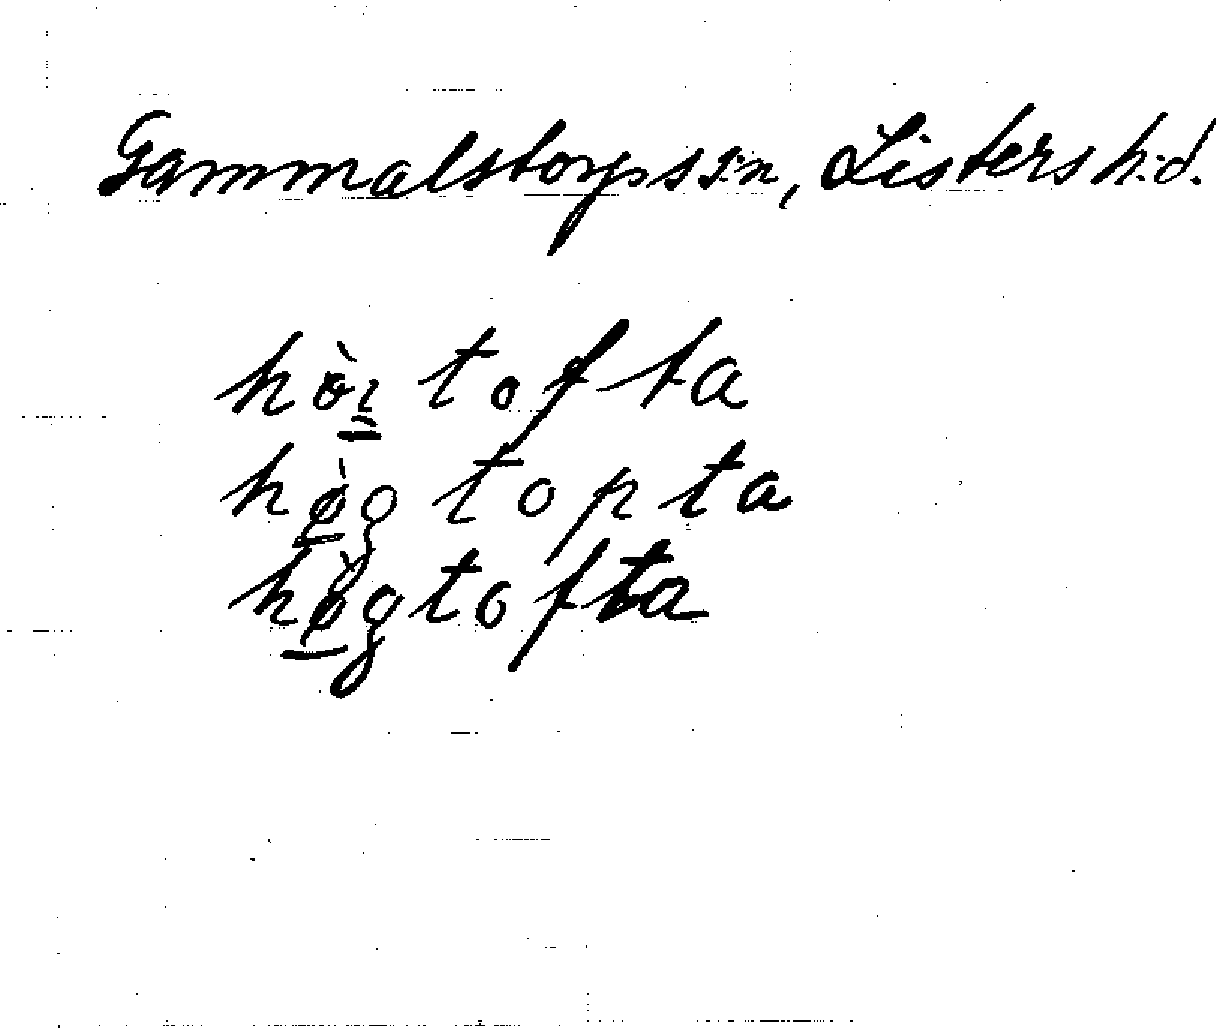 Gammalstorps s:n, Listers h:d.
hò̱i tofta
hø̱̀g topta
hø̱̀g tofta